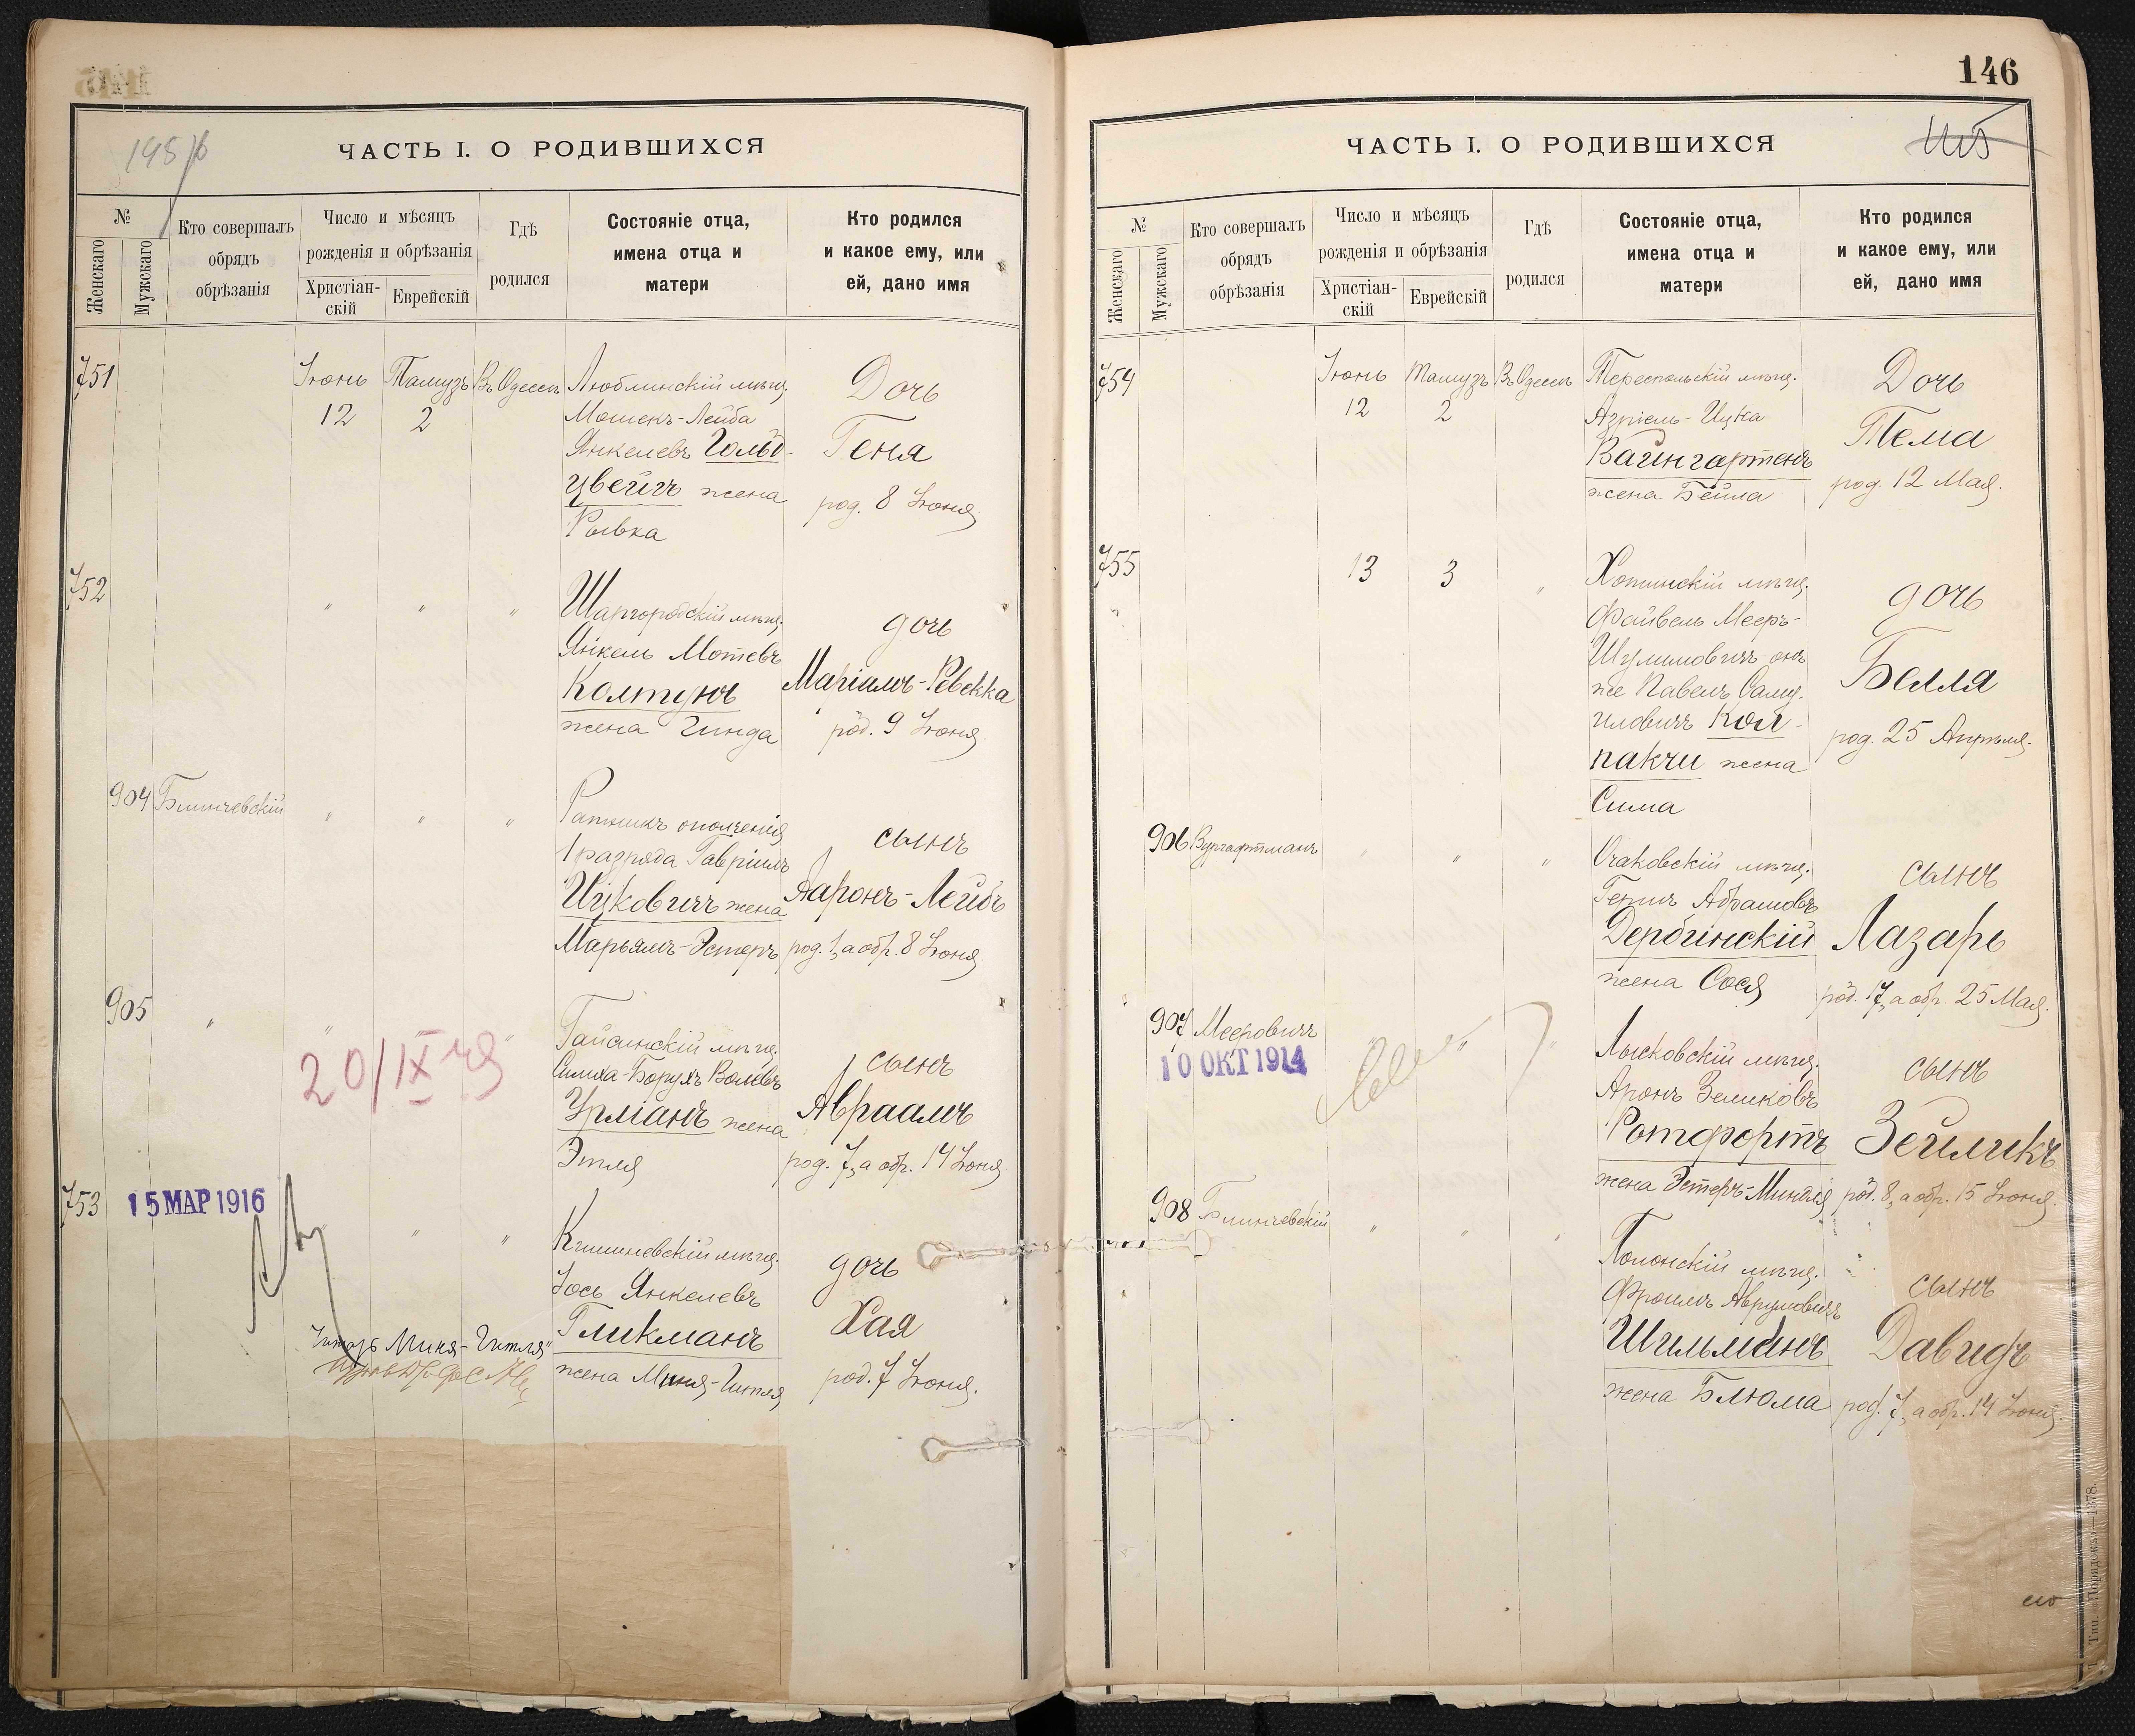 ЧАСТЬ I. О РОДИВШИХСЯ
№
Женскаго
Мужскаго
Кто совершалъ
обрядъ
обрѣзанія
Число и мѣсяцъ
рожденія и обрѣзанія
Христіан-
скій
Еврейскій
Гдѣ
родился
Состояніе отца,
имена отца и
матери
Кто родился
и какое ему, или
ей, дано имя
751
Іюнь
12
Тамузъ
2
Въ Одессѣ
Люблинскій мѣщ.
Мошекъ-Лейба
Янкелевъ Гольд-
цвейгъ жена
Рывка
Дочь
Геня
род. 8 Іюня
752
"
"
"
Шаргородскій мѣщ.
Янкель Мотевъ
Колтунъ
жена Гинда
дочь
Маріамъ-Ревекка
род. 9 Іюня
904
Блинчевскій
"
"
"
Ратникъ ополченія
1 разряда Гавріилъ
Ицковичъ жена
Марьямъ-Эстеръ
сынъ
Ааронъ-Лейбъ
род. 1, а обр. 8 Іюня
905
"
20/IX
Гайсинскій мѣщ.
Симха-Борухъ Волевъ
Урманъ жена
Этля
сынъ
Авраамъ
род. 7, а обр. 14 Іюня
753
15 МАР 1916
"
"
Кишиневскій мѣщ.
Іось Янкелевъ
Гликманъ
жена Миня-Гитля
дочь
Хая
род. 7 Іюня.
Миня-Гитля"
146
ЧАСТЬ I. О РОДИВШИХСЯ
№
Женскаго
Мужскаго
Кто совершалъ
обрядъ
обрѣзанія
Число и мѣсяцъ
рожденія и обрѣзанія
Христіан-
скій
Еврейскій
Гдѣ
родился
Состояніе отца,
имена отца и
матери
Кто родился
и какое ему, или
ей, дано имя
754
Іюнь
12
Тамузъ
2
Въ Одессѣ
Тереспольскій мѣщ.
Азріель-Ицка
Вайнгартенъ
жена Бейла
Дочь
Тема
род. 12 Мая.
755
13
3
"
Хотинскій мѣщ.
Файвель Мееръ-
Шулимовичъ онъ
же Павелъ Саму-
иловичъ Кол-
пакчи жена
Сима
дочь
Белля
род. 25 Апрѣля.
906
Вургафтманъ
"
"
"
Очаковскій мѣщ.
Абрамовъ
Дербинскій
жена Сося
сынъ
Лазарь
род. 17, а обр. 25 Мая.
907
Мееровичъ
10 ОКТ 1914
"
"
Лысковскій мѣщ.
Аронъ Зеликовъ
Ротфортъ
жена Эстеръ-Миндля
сынъ
Зейликъ
род. 8, а обр. 15 Іюня.
908
Блинчевскій
"
"
Полонскій мѣщ.
Фроимъ Аврумовичъ
Шильманъ
жена Блюма
сынъ
Давидъ
род. 7, а обр. 14 Іюня.
Тип. «Порядокъ»—1378.